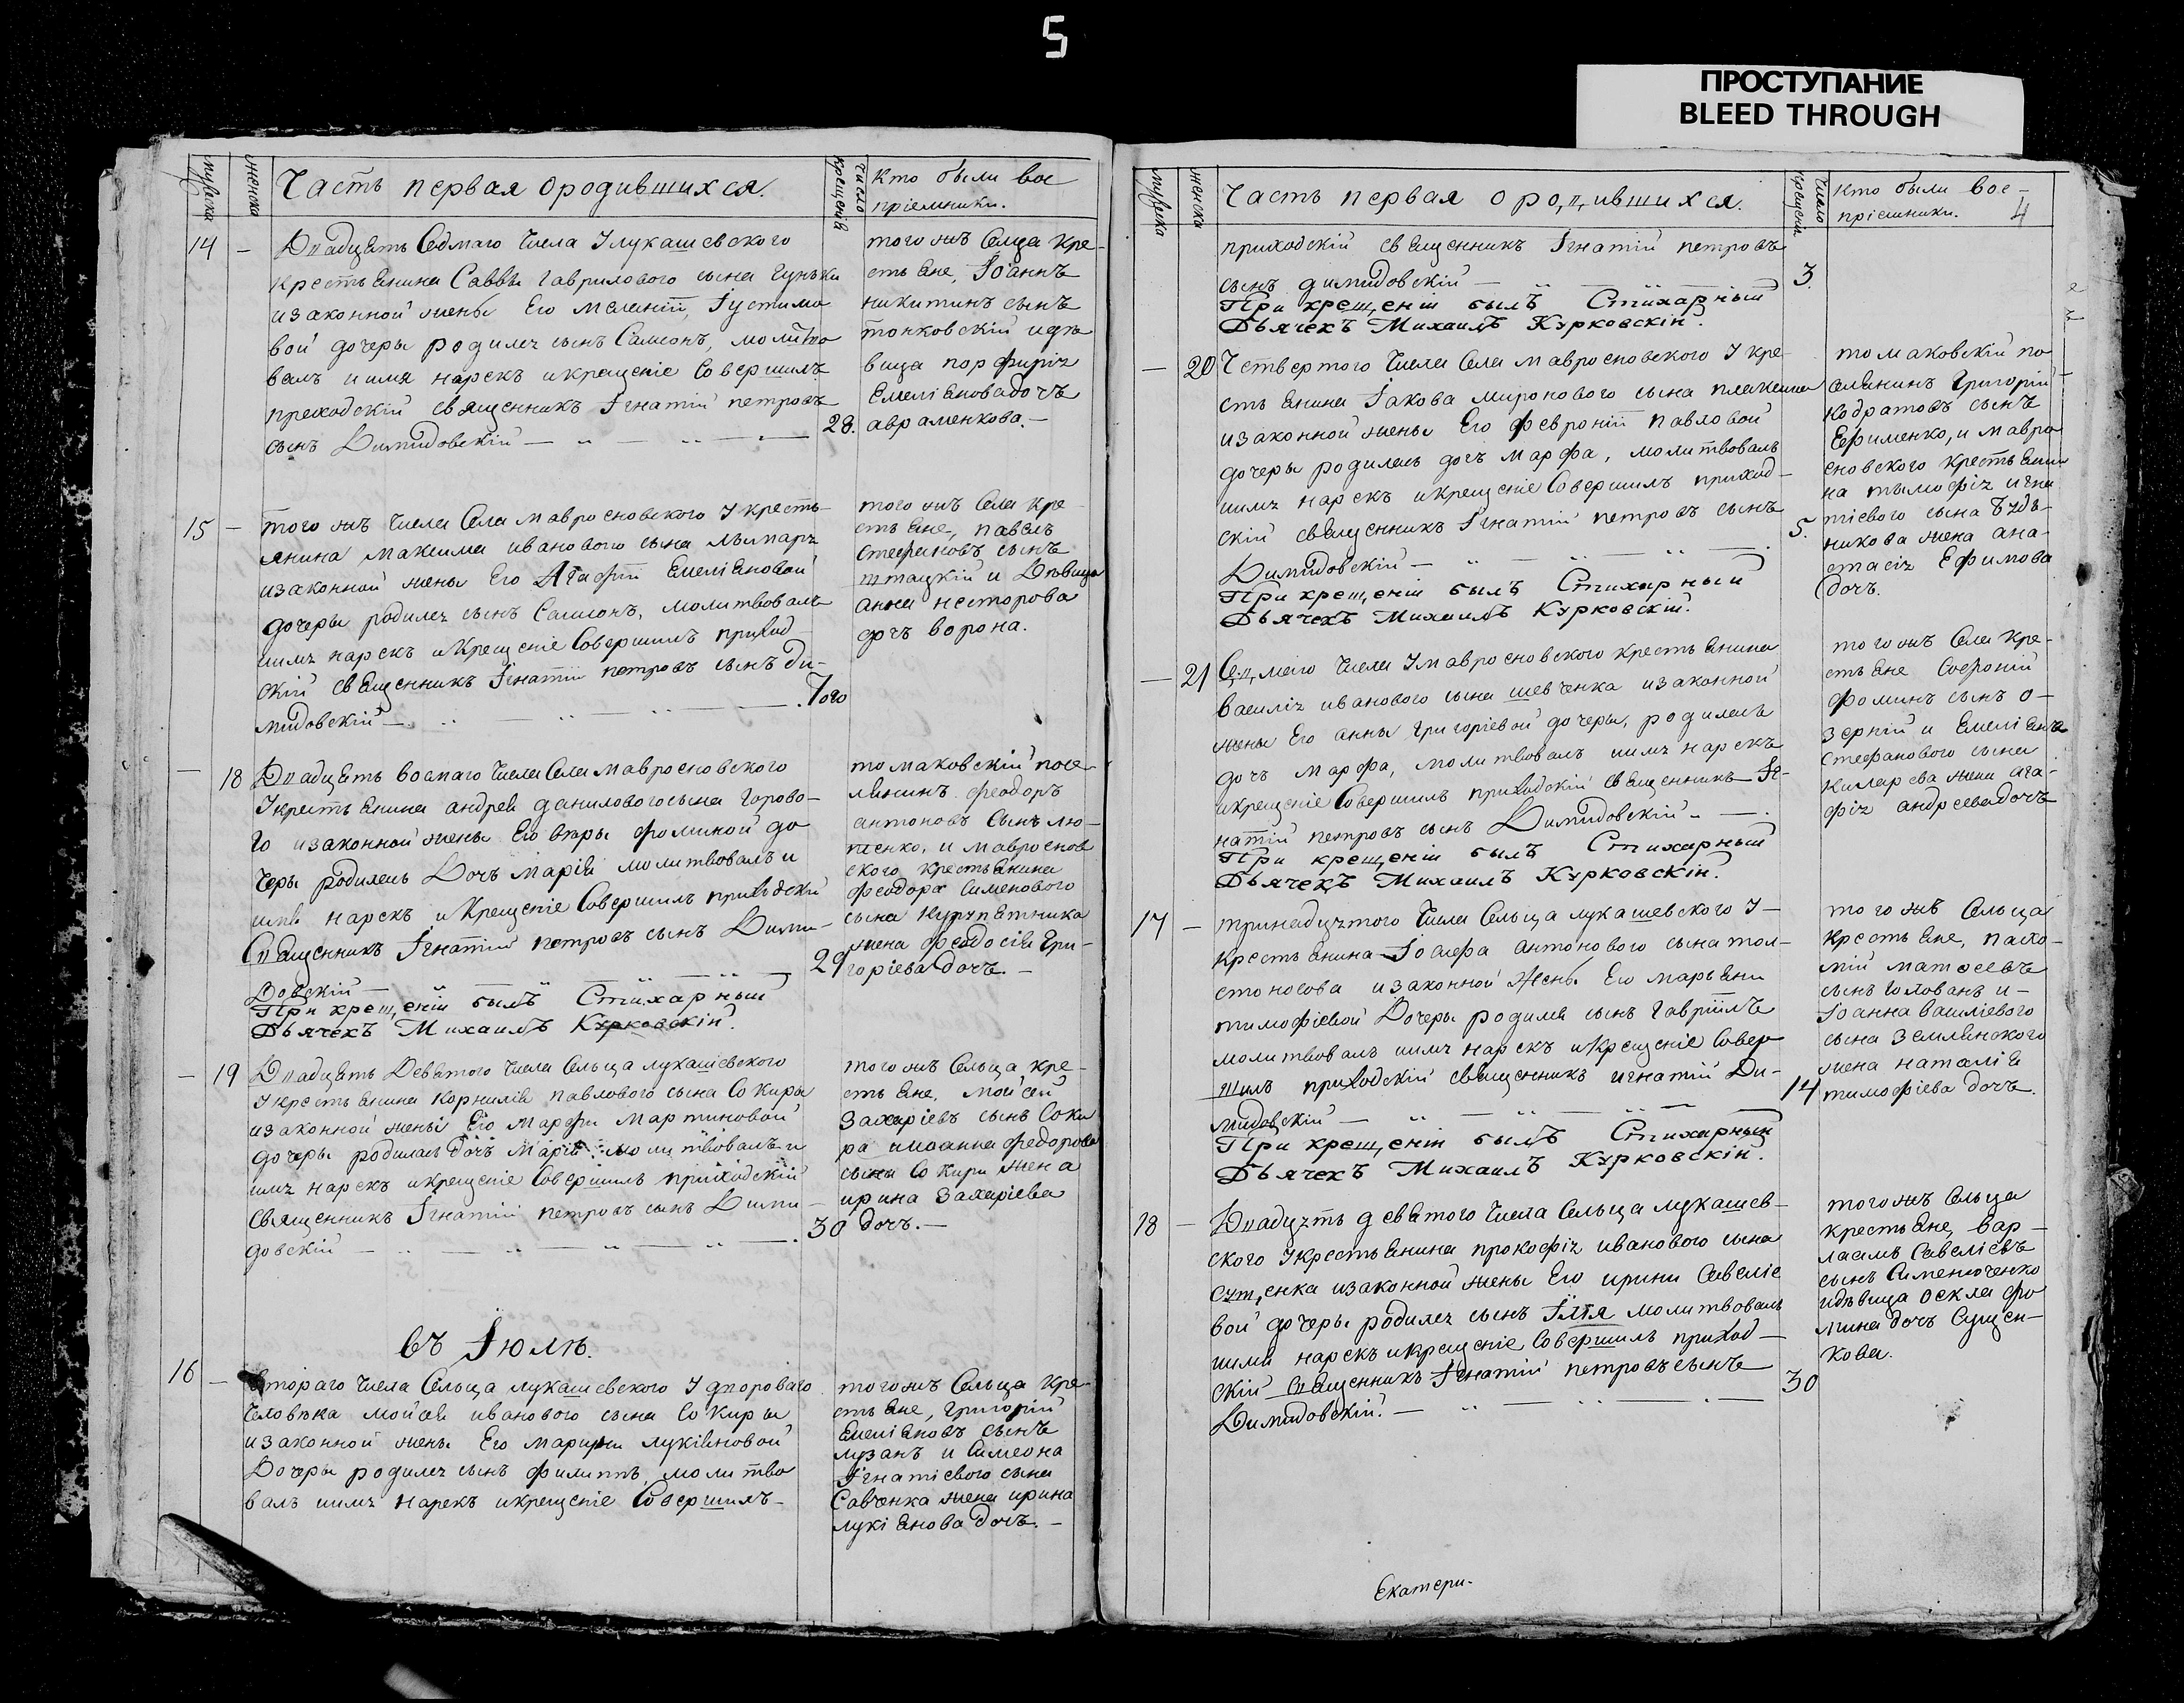 5
ПРОСТУПАНИЕ
BLEED THROUGH
мужска
женска
Часть первая ородившихся.
число крещенія
Кто были вос
пріемники.
14 – Двадцать Седмаго Числа Улукашевского
крестьянина Саввы Гаврилового сына Гуньки
изаконной жены Его Меланіи, Іустимо
вой дочеры родился сынъ Самсонъ, молитво
валъ иимя нарекъ икрещеніе Совершилъ
приходскій священникъ Ігнатій петровъ
сынъ Димидовскій 28.
того жъ Селца кре-
стьяне, Іоаннъ
никитинъ сынъ
тонковскій идѣ
вица порфирія
Емеліяновадочъ
авраменкова.
15 – того жъ Числа Села мавросновского Укресть-
янина максима иванового сына
изаконной жены Его Агафіи Емеліяновой
дочеры родился сынъ Самсонъ, молитвовалъ
иимя нарекъ икрещеніе Совершилъ приход
скій священникъ Ігнатій петровъ сынъ Ди-
мидовскій Того
того жъ Села кре
стьяне, павелъ
стефановъ сынъ
птацкій и Дѣвица
анна несторова
дочъ ворона.
– 18 Двадцать восмаго Числа Села мавросновского
Укрестьянина андрея даниловогосына Горово-
го изаконной жены Его вѣры фоминой до
черы родилась Дочъ Марія молитвовалъ и
имя нарекъ икрещеніе Совершилъ приходскій
Священникъ Ігнатій петровъ сынъ Дими-
Довскій 29
При крещеніи былъ Стихарный
Дьячекъ Михаилъ Курковскій.
томаковскій посе-
лянинъ феодоръ
антоновъ Сынъ лю-
тенко, и мавроснов
ского крестьянина
феодора Сименового
сына Курупятника
жена феодосія Гри-
горіева Дочъ.
– 19 Двадцать Девятого Числа Сельца лукашевского
Укрестьянина Корнилія павлового сына Сокиры
изаконной жены Его марфы Мартиновой
дочеры родилась дочъ Марія молитвовалъ и
имя нарекъ икрещеніе Совершилъ приходскій
священникъ Ігнатій петровъ сынъ Дими
довскій 30
того жъ Сельца кре-
стьяне, мойсей
Захаріевъ сынъ Соки
ра ииоанна федорова
сына Сокиры жена
ирина Захаріева
дочъ.
въ Іюлѣ.
16 – втораго Числа Сельца лукашевского Удворового
Человѣка мойсея иванового сына Сокиры
изаконной жены Его марины лукіяновой
Дочеры родился сынъ филиппъ, молитво
валъ иимя нарекъ икрещеніе Совершилъ
тогожъ Сельца кре-
стьяне, григорій
Емеліяновъ сынъ
лузанъ и Симеона
Ігнатіевого сына
Савченка жена ирина
лукіянова дочъ.
мужска
женска
Часть первая о родившихся.
Число крещенія
Кто были вос-
пріемники.
4
приходскій священникъ Ігнатій петровъ
сынъ димидовскій 3.
При крещеніи былъ Стихарный
Дьячекъ Михаилъ Курковскій.
– 20 Четвертого Числа Села мавросновского Укре-
стьянина Іакова миронового сына
изаконной жены Его февроніи павловой
дочеры родилась дочъ марфа, молитвовалъ
иимя нарекъ икрещеніе Совершилъ приход-
скій священникъ Ігнатій петровъ сынъ
Димидовскій 5.
При крещеніи былъ Стихарный
Дьячекъ Михаилъ Курковскій.
томаковскій по
селянинъ Григорій
Кодратовъ сынъ
Ефименко, и мавро
сновского крестьяни
на тымофія игна
тіевого сына Будь-
никова жена ана-
стасія Ефимова
Дочъ.
– 21 Седмаго Числа Умавросновского крестьянина
василія иванового сына шевченка изаконной
жены Его анны григоріевой дочеры, родилась
дочъ марфа, молитвовалъ иимя нарекъ
икрещеніе Совершилъ приходскій священникъ Іг-
натій петровъ сынъ Димидовскій
При крещеніи былъ Стихарный
Дьячекъ Михаилъ Курковскій.
тогожъ Села кре-
стьяне Софроній
фоминъ сынъ о-
зерній и Емеліяна
стефанового сына
жена ага-
фія андреевадочъ
17 – тринадцятого Числа Сельца лукашевского У-
крестьянина Іоасафа антонового сына тол-
стоногова изаконной Жены Его марьяны
тимофіевой Дочеры родился сынъ гавріилъ
молитвовалъ иимя нарекъ икрещеніе Совер
шилъ приходскій священникъ игнатій Ди-
мидовскій 14
При крещеніи былъ Стихарный
Дьячекъ Михаилъ Курковскій.
того жъ Сельца
крестьяне, пахо-
мій матоеевъ
сынъ Голованъ и-
Іоанна василіевого
сына Землянского
жена наталія
тимофіева дочъ.
18 – Двадцять девятого Числа Сельца лукашев-
ского Укрестьянина прокофія иванового сына
изаконной жены Его ирины Савеліе
вой дочеры родился сынъ Ілія молитвовалъ
иимя нарекъ икрещеніе Совершилъ приход-
скій Священникъ Ігнатій петровъ сынъ
Димидовскій. 30
тогожъ Сельца
крестьяне, вар-
лаамъ Савеліевъ
сынъ Сименюченко
идѣвица фо
мина дочъ Сущен-
кова.
Екатери-